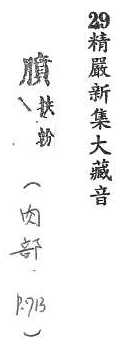 29精嚴新集大藏音
膹 扶粉
(肉部.P.913)